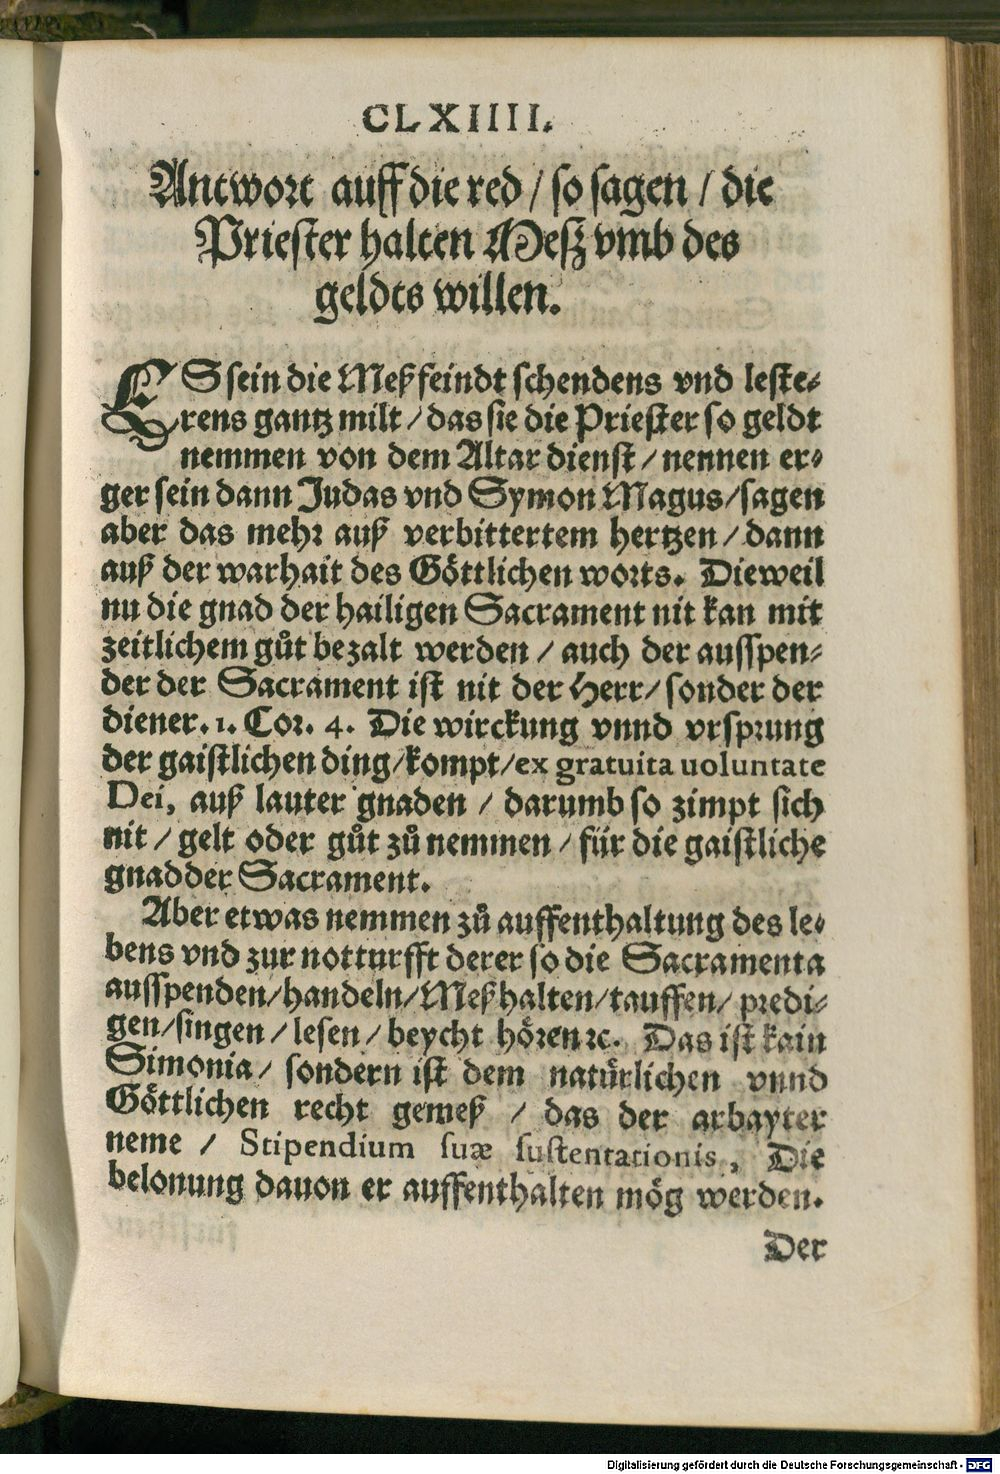 CLXIIII.
Antwort auff die red / so sagen / die
Priester halten Mesz vmb des
geldts willen.
ES sein die Meßfeindt schendens vnd leste-
rens gantz milt / das sie die Priester so geldt
nemmen von dem Altar dienst / nennen er-
ger sein dann Judas vnd Symon Magus/sagen
aber das mehr auß verbittertem hertzen / dann
auß der warhait des Göttlichen worts. Dieweil
nu die gnad der hailigen Sacrament nit kan mit
zeitlichem gůt bezalt werden / auch der ausspen-
der der Sacrament ist nit der Herr/ sonder der
diener. 1. Cor. 4. Die wirckung vnnd vrsprung
der gaistlichen ding/kompt/ex gratuita uoluntate
Dei, auß lauter gnaden / darumb so zimpt sich
nit / gelt oder gůt zů nemmen / für die gaistliche
gnad der Sacrament.
Aber etwas nemmen zů auffenthaltung des le-
bens vnd zur notturfft derer so die Sacramenta
ausspenden/handeln/Meß halten/tauffen/ predi-
gen/singen / lesen / beycht hören ꝛc. Das ist kain
Simonia / sondern ist dem natürlichen vnnd
Göttlichen recht gemeß / das der arbayter
neme / Stipendium suæ sustentationis, Die
belonung dauon er auffenthalten mög werden.
Der
Digitalisierung gefördert durch die Deutsche Forschungsgemeinschaft - DFG